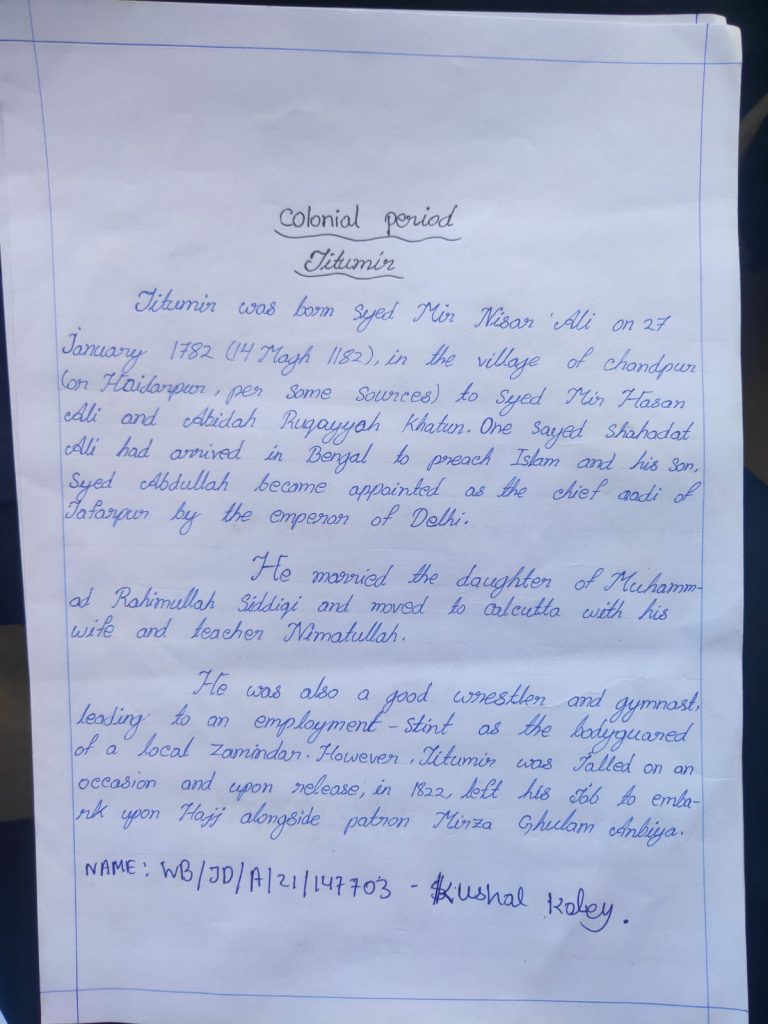 Colonial period
Titumir
Titumir was born Syed Mir Nisar 'Ali on 27
January 1782 (14 Magh 1182), in the village of chandpur
(or Haidarpur, per some sources) to Syed Mir Hasan
Ali and Abidah Ruqayyah Khatun. One Sayed Shahadat
Ali had arrived in Bengal to preach Islam and his son,
Syed Abdullah become appointed as the chief qadi of
Jafarpur by the emperor of Delhi.
He married the daughter of Muhamm-
ad Rahimullah Siddiqi and moved to calcutta with his
wife and teacher Nimatullah.
He was also a good wrestler and gymnast,
leading to an employment-stint as the bodyguared
of a local zamindar. However, Titumir was Jalled on an
occasion and upon release, in 1822, left his Job to emba-
rk upon Hajj alongside patron Mirza Ghulam Anbiya.
NAME: WB/JD/A/21/147703 - Kushal Kobey.